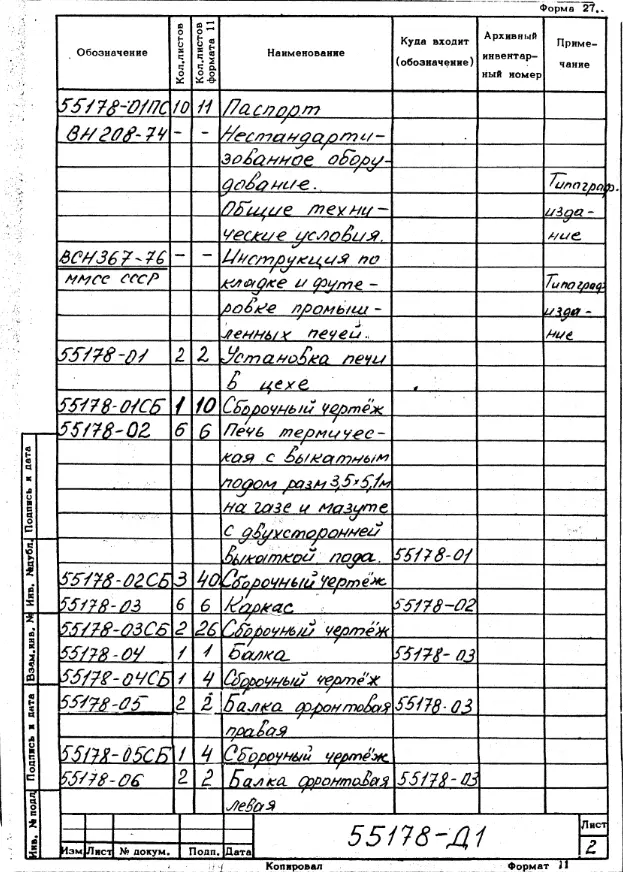 Форма 27..
Обозначение Кол.листов Кол.листов формата 11 Наименование Куда входит (обозначение) Архивный инвентарный номер Примечание
55178-01ПС 10 11 Паспорт
ВН 208-74 - - Нестандарти-
зованное обору-
дование. Типограф.
Общие техни- изда-
ческие условия. ние
ВСН367-76 - - Инструкция по
ММСС СССР кладке и футе- Типограф.
ровке промыш- изда-
ленных печей. ние
55178-01 2 2 Установка печи
в цехе
55178-01СБ 1 10 Сборочный чертёж
55178-02 6 6 Печь термичес-
кая с выкатным
подом разм 3,5×5,1м
на газе и мазуте
с двухсторонней
выкаткой пода. 55178-01
55178-02СБ 3 40 Сборочный чертёж
55178-03 6 6 Каркас 55178-02
55178-03СБ 2 26 Сборочный чертёж
55178-04 1 1 Балка 55178-03
55178-04СБ 1 4 Сборочный чертёж
55178-05 2 2 Балка фронтовая 55178-03
правая
55178-05СБ 1 4 Сборочный чертёж
55178-06 2 2 Балка фронтовая 55178-03
левая
Подпись и дата
Инв. №дубл.
Взам.инв. №
Подпись и дата
Инв. №подл.
55178-Д1
Лист
2
Изм Лист № докум. Подп. Дата
Копировал Формат 11